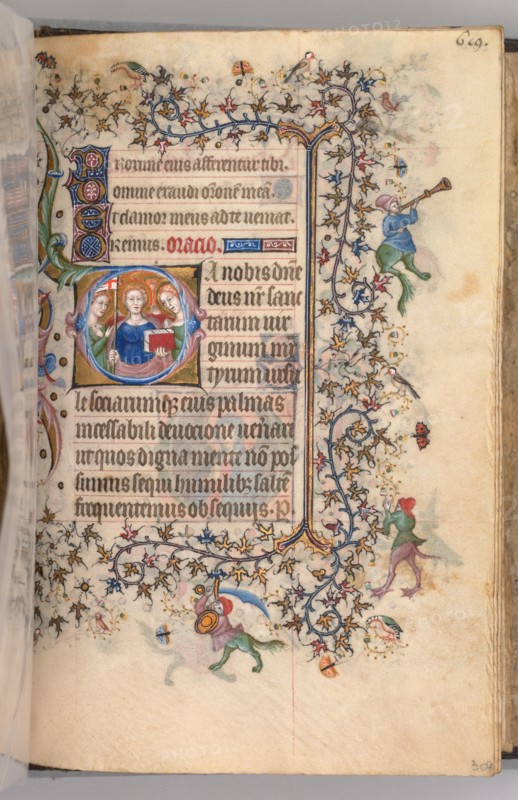 619.
Proxime eius afferentur tibi.
Domine exaudi oronē meā.
Et clamor meus ad te ueniat.
Oremus. oracio.
Da nobis dñe
deus nr̄ sanc
tarum uir
ginum my
tyrum ursu
le sociarumq̨ eius palmas
incessabili deuocione uenari
ut quos digna mente nō pos
sumus sequi humilibꝫ saltē
frequentemus obsequijs. P
304
PHOTO12